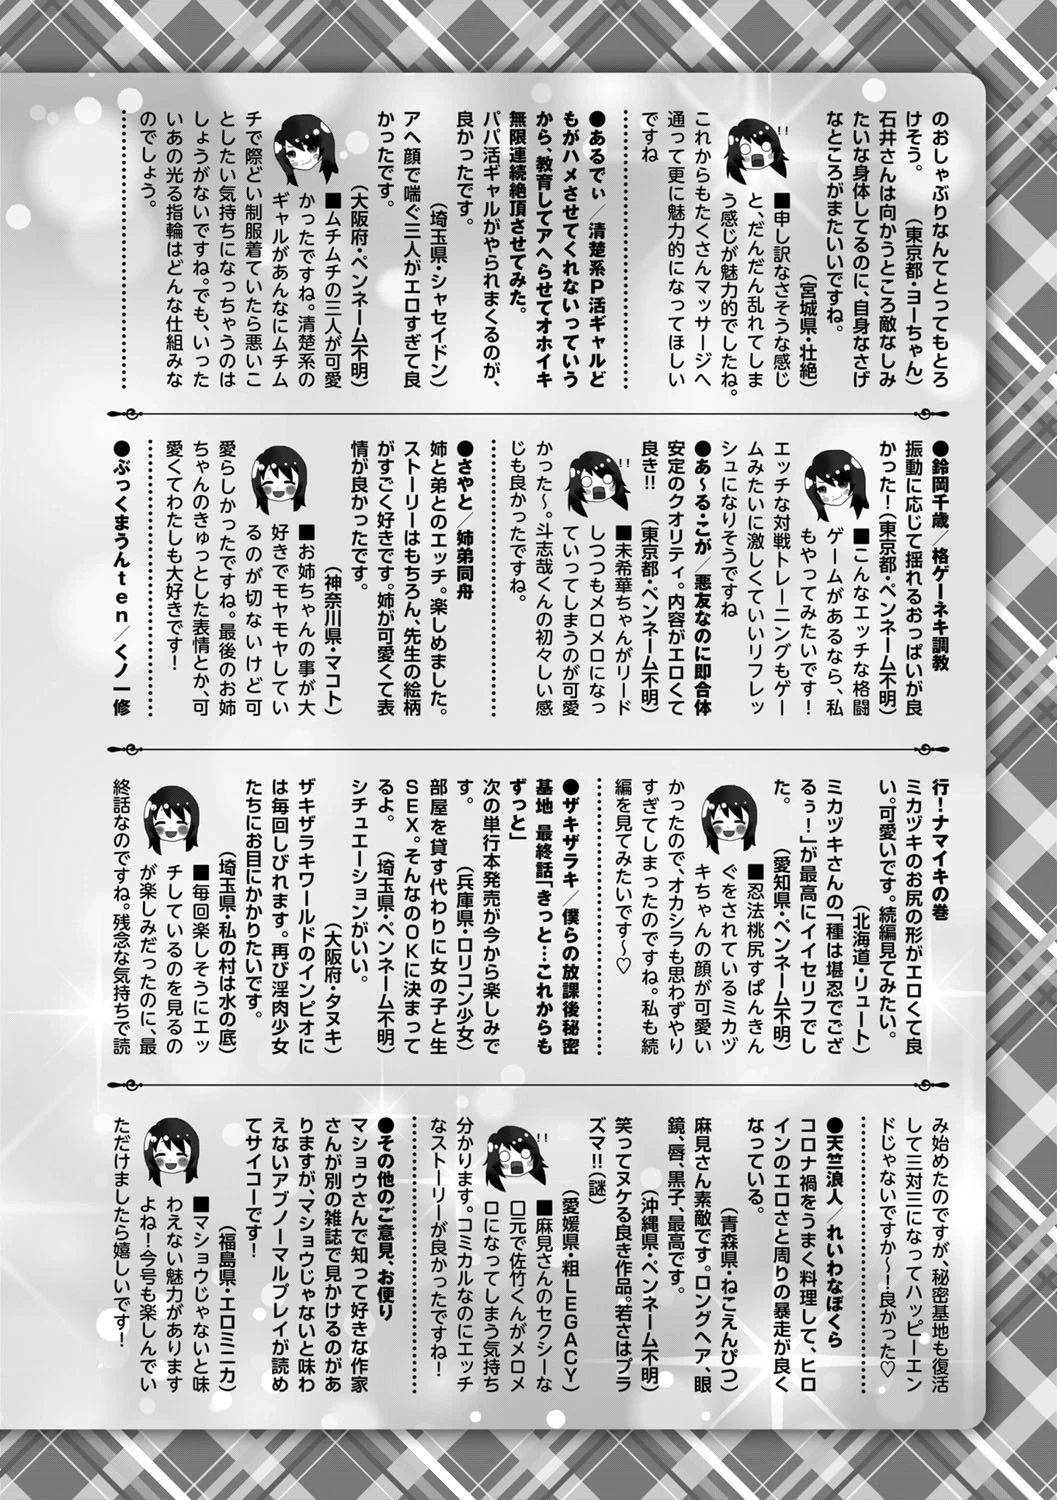 のおしゃぶりなんてとってもとろ
けそう。　（東京都・ヨーちゃん）
石井さんは向かうところ敵なしみ
たいな身体してるのに、自身なさげ
なところがまたいいですね。
（宮城県・壮絶）
■申し訳なさそうな感じ
と、だんだん乱れてしま
う感じが魅力的でしたね。
これからもたくさんマッサージへ
通って更に魅力的になってほしい
ですね
●あるでぃ／清楚系P活ギャルど
もがハメさせてくれないっていう
から、教育してアヘらせてオホイキ
無限連続絶頂させてみた。
パパ活ギャルがやられまくるのが、
良かったです。
（埼玉県・シャセイドン）
アヘ顔で喘ぐ三人がエロすぎて良
かったです。
（大阪府・ペンネーム不明）
■ムチムチの三人が可愛
かったですね。清楚系の
ギャルがあんなにムチム
チで際どい制服着ていたら悪いこ
としたい気持ちになっちゃうのは
しょうがないですね。でも、いった
いあの光る指輪はどんな仕組みな
のでしょう。
●鈴岡千歳／格ゲーネキ調教
振動に応じて揺れるおっぱいが良
かった！（東京都・ペンネーム不明）
■こんなエッチな格闘
ゲームがあるなら、私
もやってみたいです！
エッチな対戦トレーニングもゲー
ムみたいに激しくていいリフレッ
シュになりそうですね
●あ〜る・こが／悪友なのに即合体
安定のクオリティ。内容がエロくて
良き!!　（東京都・ペンネーム不明）
■未希華ちゃんがリード
しつつもメロメロになっ
ていってしまうのが可愛
かった〜。斗志哉くんの初々しい感
じも良かったですね。
●さやと／姉弟同舟
姉と弟とのエッチ。楽しめました。
ストーリーはもちろん、先生の絵柄
がすごく好きです。姉が可愛くて表
情が良かったです。
（神奈川県・マコト）
■お姉ちゃんの事が大
好きでモヤモヤしてい
るのが切ないけど可
愛らしかったですね。最後のお姉
ちゃんのきゅっとした表情とか、可
愛くてわたしも大好きです！
●ぶっくまうんten／くノ一修
行！ナマイキの巻
ミカヅキのお尻の形がエロくて良
い。可愛いです。続編見てみたい。
（北海道・リュート）
ミカヅキさんの「種は堪忍でござ
るぅ！」が最高にイイセリフでし
た。　（愛知県・ペンネーム不明）
■忍法桃尻すぱんきん
ぐをされているミカヅ
キちゃんの顔が可愛い
かったので、オカシラも思わずやり
すぎてしまったのですね。私も続
編を見てみたいです〜♡
●ザキザラキ／僕らの放課後秘密
基地　最終話「きっと…これからも
ずっと」
次の単行本発売が今から楽しみで
す。　（兵庫県・ロリコン少女）
部屋を貸す代わりに女の子と生
SEX。そんなのOKに決まって
るよ。　（埼玉県・ペンネーム不明）
シチュエーションがいい。
（大阪府・タヌキ）
ザキザラキワールドのインピオに
は毎回しびれます。再び淫肉少女
たちにお目にかかりたいです。
（埼玉県・私の村は水の底）
■毎回楽しそうにエッ
チしているのを見るの
が楽しみだったのに、最
終話なのですね。残念な気持ちで読
み始めたのですが、秘密基地も復活
して三対三になってハッピーエン
ドじゃないですか〜！良かった♡
●天竺浪人／れいわなぼくら
コロナ禍をうまく料理して、ヒロ
インのエロさと周りの暴走が良く
なっている。
（青森県・ねこえんぴつ）
麻見さん素敵です。ロングヘア、眼
鏡、唇、黒子、最高です。
（沖縄県・ペンネーム不明）
笑ってヌケる良き作品。若さはプラ
ズマ!!（謎）
（愛媛県・粗LEGACY）
■麻見さんのセクシーな
口元で佐竹くんがメロメ
ロになってしまう気持ち
分かります。コミカルなのにエッチ
なストーリーが良かったですね！
●その他のご意見、お便り
マショウさんで知って好きな作家
さんが別の雑誌で見かけるのがあ
りますが、マショウじゃないと味わ
えないアブノーマルプレイが読め
てサイコーです！
（福島県・エロミニカ）
■マショウじゃないと味
わえない魅力があります
よね！今号も楽しんでい
ただけましたら嬉しいです！